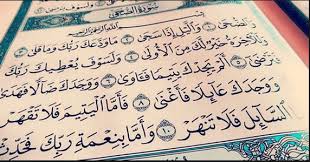 سُورَةُ الضُّحَىٰ
وَالضُّحَىٰ ١ وَاللَّيْلِ إِذَا سَجَىٰ ٢ مَا وَدَّعَكَ رَبُّكَ وَمَا قَلَىٰ
وَلَلْآخِرَةُ خَيْرٌ لَّكَ مِنَ الْأُولَىٰ ٤ وَلَسَوْفَ يُعْطِيكَ رَبُّكَ
فَتَرْضَىٰ ٥ أَلَمْ يَجِدْكَ يَتِيمًا فَآوَىٰ ٦ وَوَجَدَكَ ضَالًّا فَهَدَىٰ
وَوَجَدَكَ عَائِلًا فَأَغْنَىٰ ٨ فَأَمَّا الْيَتِيمَ فَلَا تَقْهَرْ
السَّائِلَ فَلَا تَنْهَرْ ١٠ وَأَمَّا بِنِعْمَةِ رَبِّكَ فَحَدِّثْ